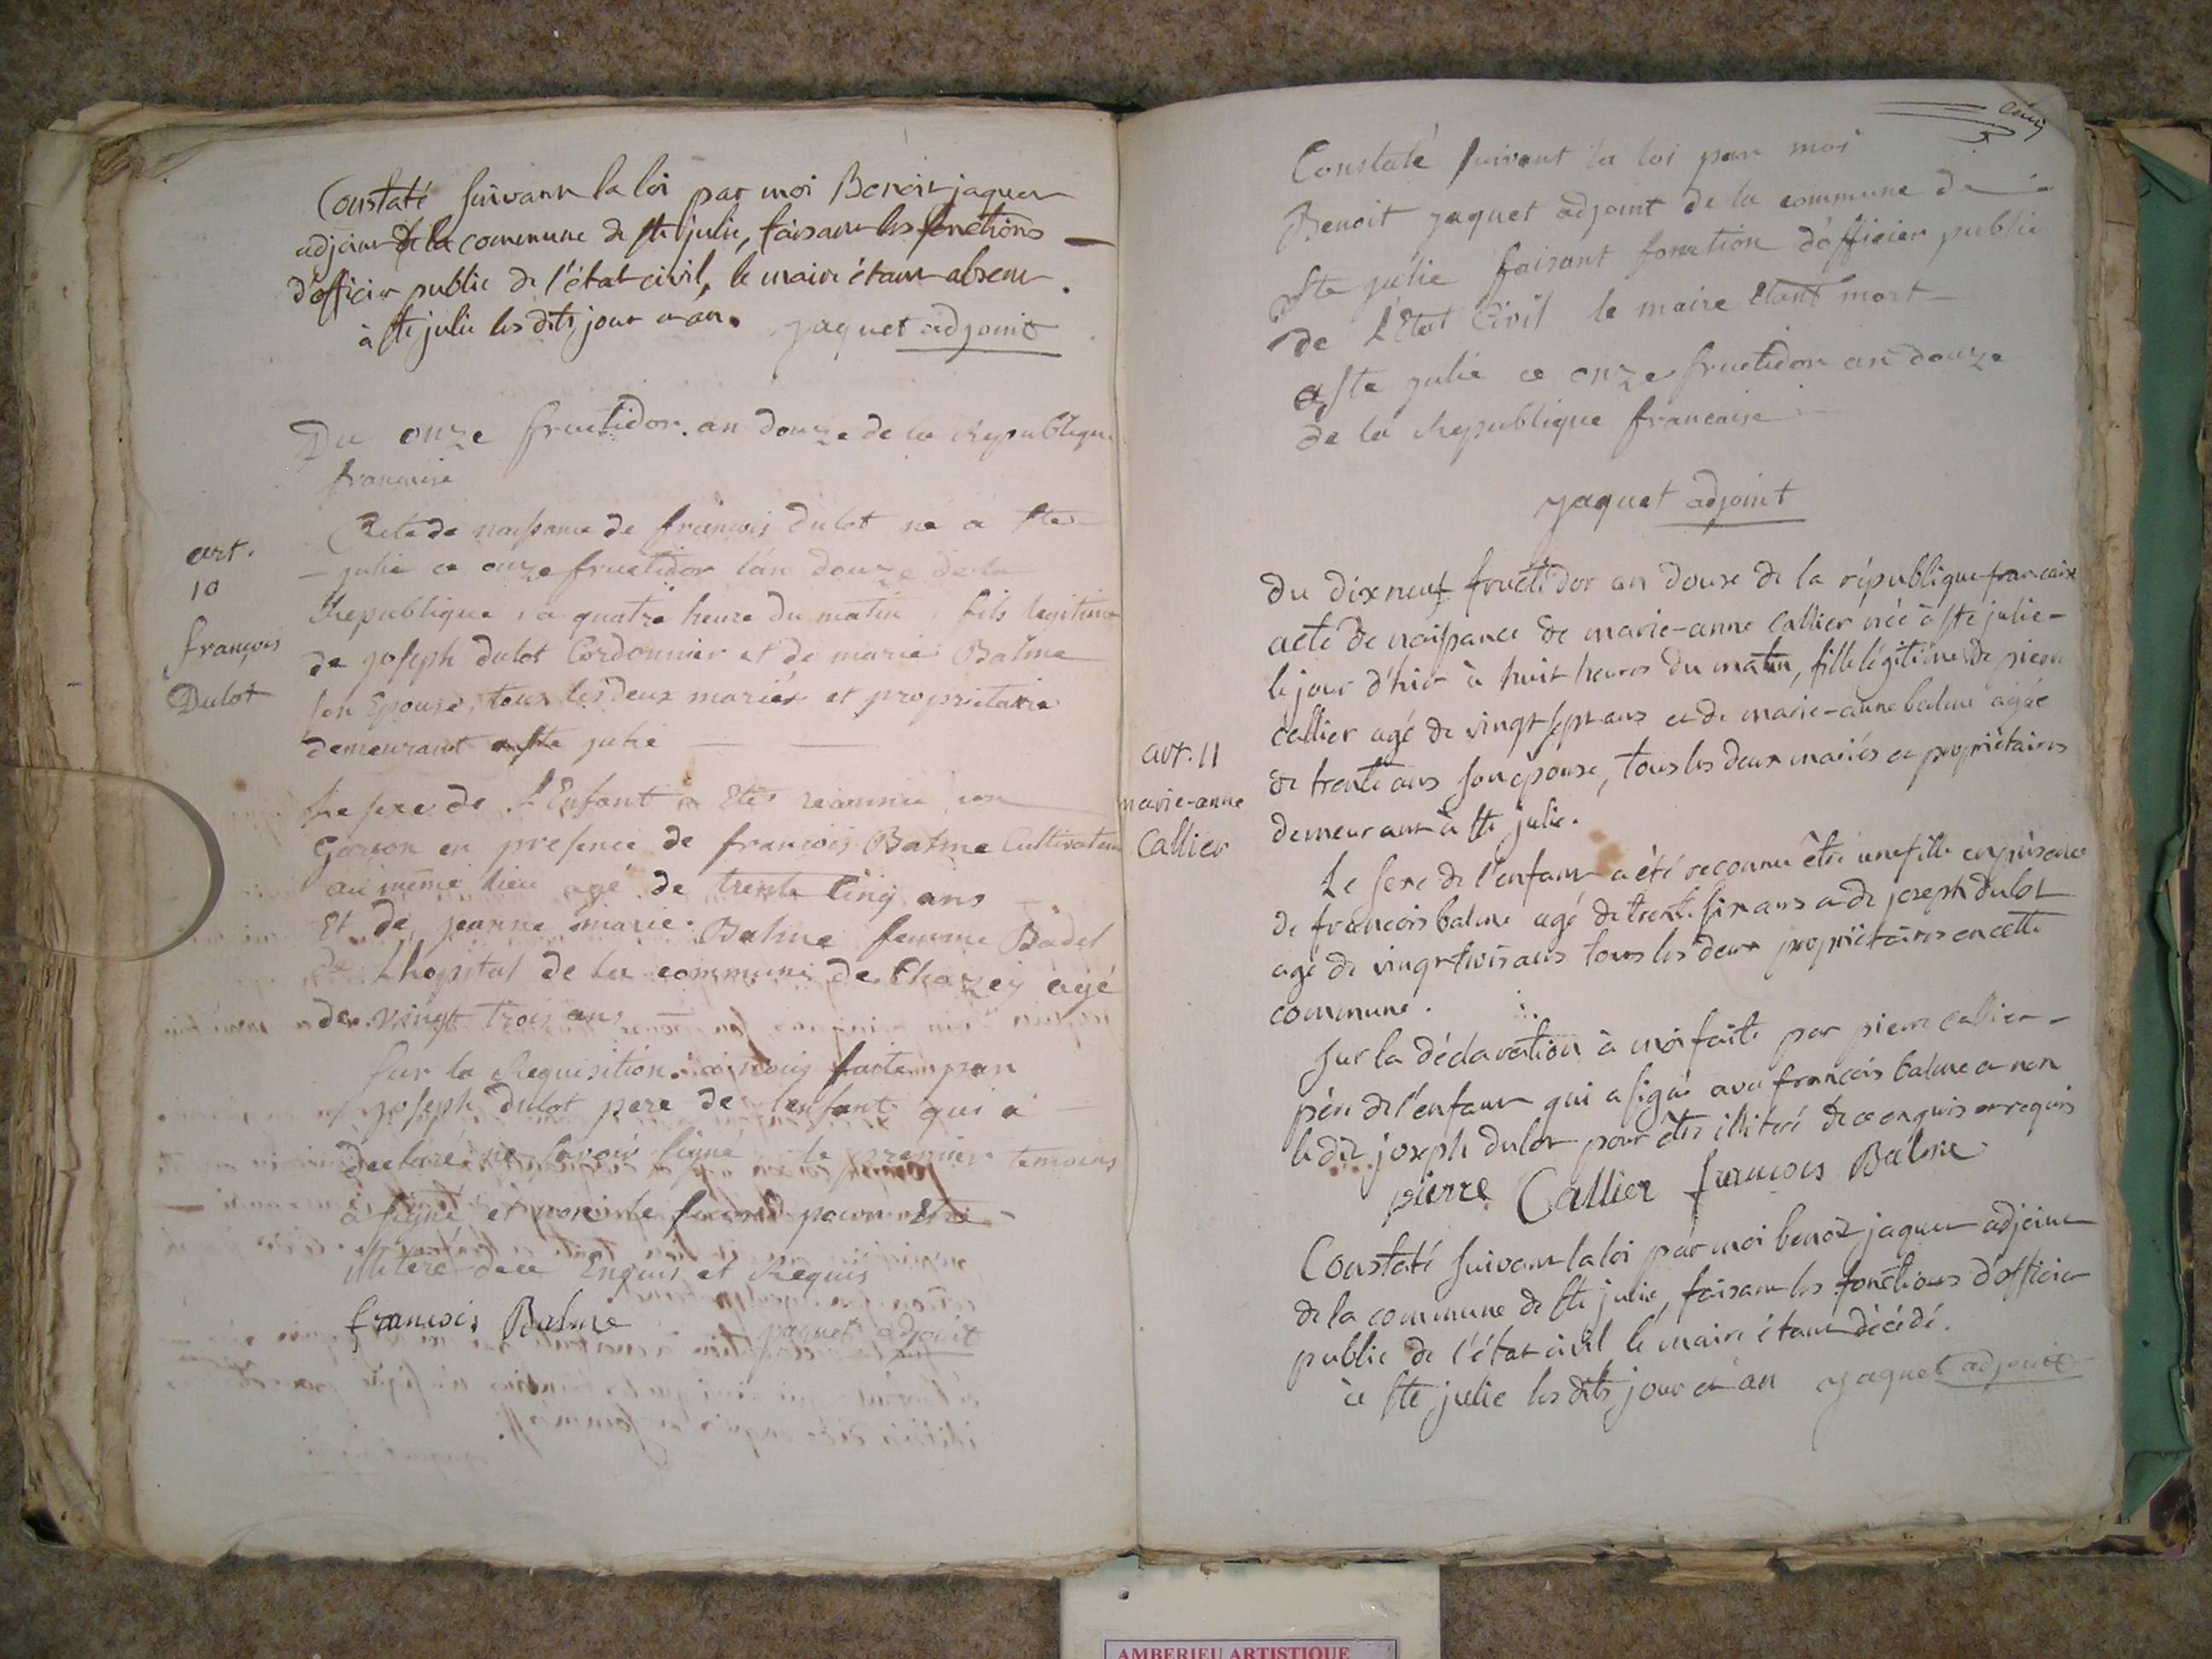 Constaté suivant la loi par moi Benoit jaquet
adjoint de la commune de ste julie, faisant les fonctions
d'officier public de l'état civil, le maire étant absent.
à ste julie les dits jour et an. jaquet adjoint
Du onze fructidor. an douze de la Republique
francaise
art.
10
françois
Dulot
Acte de naissance de francois dulot né a ste
julie ce onze fructidor l'an douze de la
Republique, a quatre heure du matin, fils legitime
de joseph dulot Cordonnier et de marie Balme
son Epouse, tous les deux mariés et proprietaire
demeurant a ste julie
Le sexe de L'Enfant a Eté reconnu un
Garcon en presence de francois Balme Cultivateur
au même lieu agé de trente Cinq ans
Et de jeanne marie Balme femme Badel
de Lhopital de la commune de Chazey agé
de vingt trois ans
sur la Requisition a nous faite par
joseph dulot pere de l'enfant qui a
Declaré ne savoir signé, le premier temoins
a signé et non le second pour Etre
illiteré dece Enquis et Requis
francois Balme jaquet adjoint
Constaté suivant la loi par moi
Benoit jaquet adjoint de la commune de
Ste julie faisant fonction d'officier public
de L'Etat Civil le maire Etant mort
a Ste julie ce onze fructidor an douze
de la Republique francaise
jaquet adjoint
art. 11
marie-anne
Callier
du dix neuf fructidor an douse de la république francaise
acte de naissance de marie-anne Callier née à ste julie
le jour d'hier à huit heures du matin, fille légitime de pierre
callier agé de vingt sept ans et de marie-anne balme agée
de trente ans son épouse, tous les deux mariés et propriétaires
demeurant à ste julie.
Le sexe de l'enfant a été reconnu être une fille en présence
de francois balme agé de trente six ans et de joseph dulot
agé de vingt trois ans tous les deux propriétaires en cette
commune.
sur la déclaration à moi faite par pierre callier
père de l'enfant qui a signé avec francois balme et non
le dit joseph dulot pour être illiteré de ce enquis et requis
pierre Callier francois Balme
Constaté suivant la loi par moi benoit jaquet adjoint
de la commune de ste julie, faisant les fonctions d'officier
public de l'état civil le maire étant décédé.
à ste julie les dits jour et an jaquet adjoint
AMBERIEU ARTISTIQUE